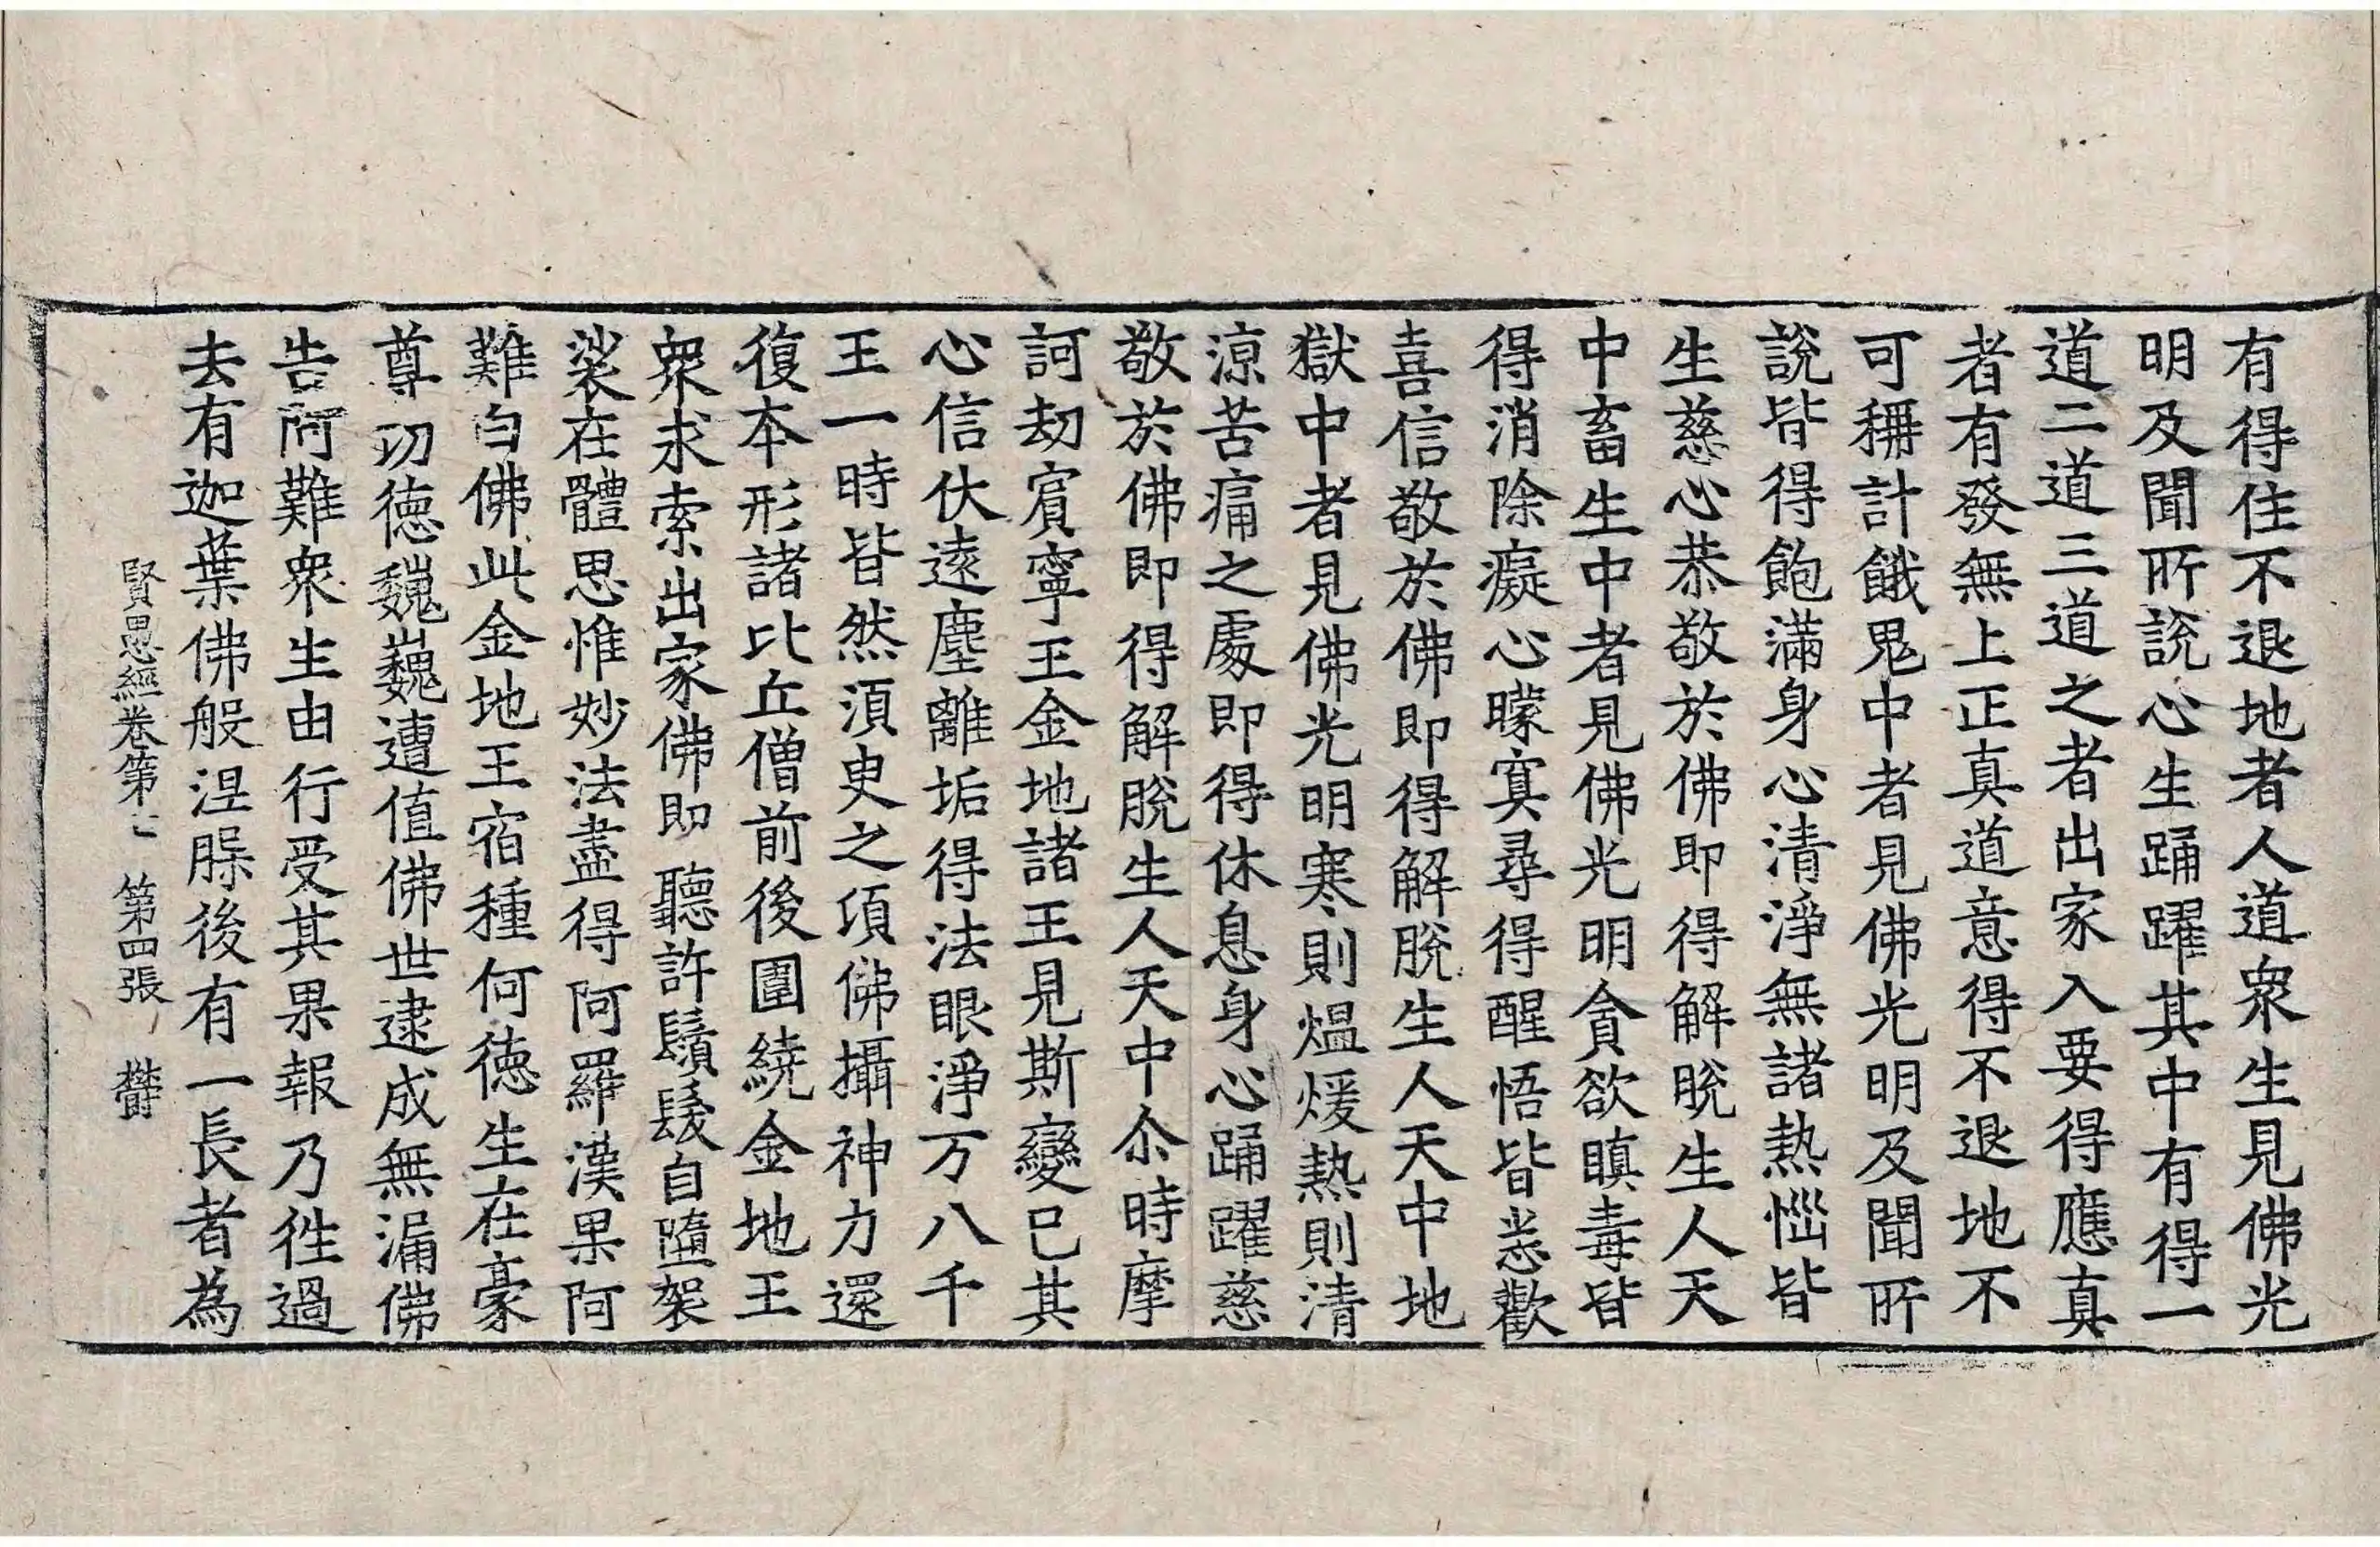 有得住不退地者人道衆生見佛光
明及聞所說心生踊躍其中有得一
道二道三道之者出家入要得應真
者有發無上正真道意得不退地不
可稱計餓鬼中者見佛光明及聞所
說皆得飽滿身心清淨無諸熱惱皆
生慈心恭敬於佛即得解脫生人天
中畜生中者見佛光明貪欲瞋毒皆
得消除癡心曚冥尋得醒悟皆悉歡
喜信敬於佛即得解脫生人天中地
獄中者見佛光明寒則熅煖熱則清
涼苦痛之處即得休息身心踊躍慈
敬於佛即得解脫生人天中尒時摩
訶劫賓寧王金地諸王見斯變已其
心信伏遠塵離垢得法眼淨万八千
王一時皆然須臾之頃佛攝神力還
復本形諸比丘僧前後圍繞金地王
衆求索出家佛即聽許鬚髮自墮袈
裟在體思惟妙法盡得阿羅漢果阿
難白佛此金地王宿種何德生在豪
尊功德巍巍遭值佛世逮成無漏佛
告阿難衆生由行受其果報乃往過
去有迦葉佛般涅槃後有一長者為
賢愚經卷第七 第四張 欝